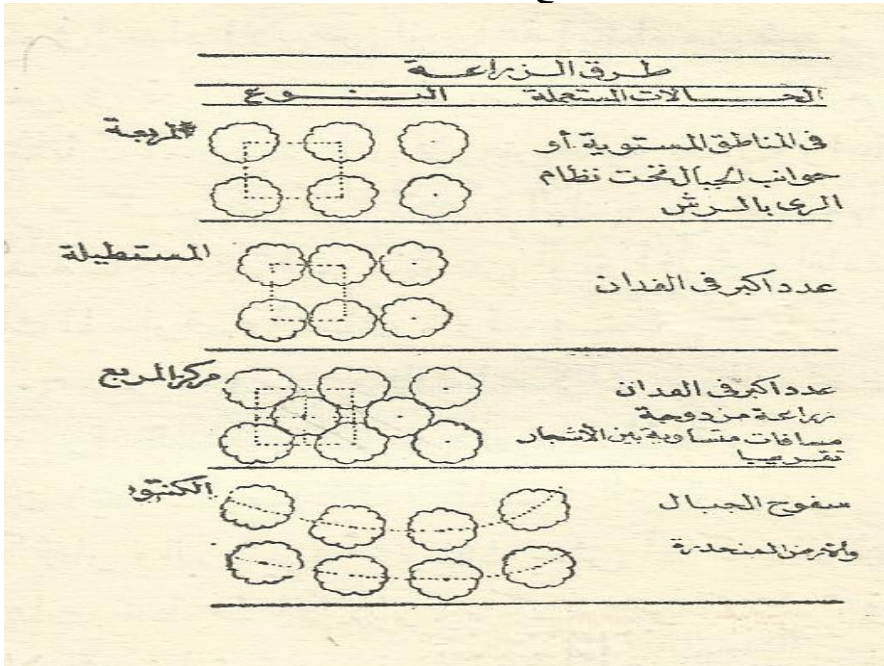 طرق الزراعة
الحالات المستعملة النوع
فى المناطق المستوية أو
جوانب الجبال تحت نظام
الرى بالرش
المربعة
عدد اكبر فى الفدان
المستطيلة
عدد اكبر فى الفدان
زراعة مزدوجة
مسافات متساوية بين الأشجار
تقريبا
مركز المربع
سفوح الجبال
والأرض المنحدرة
الكنتور